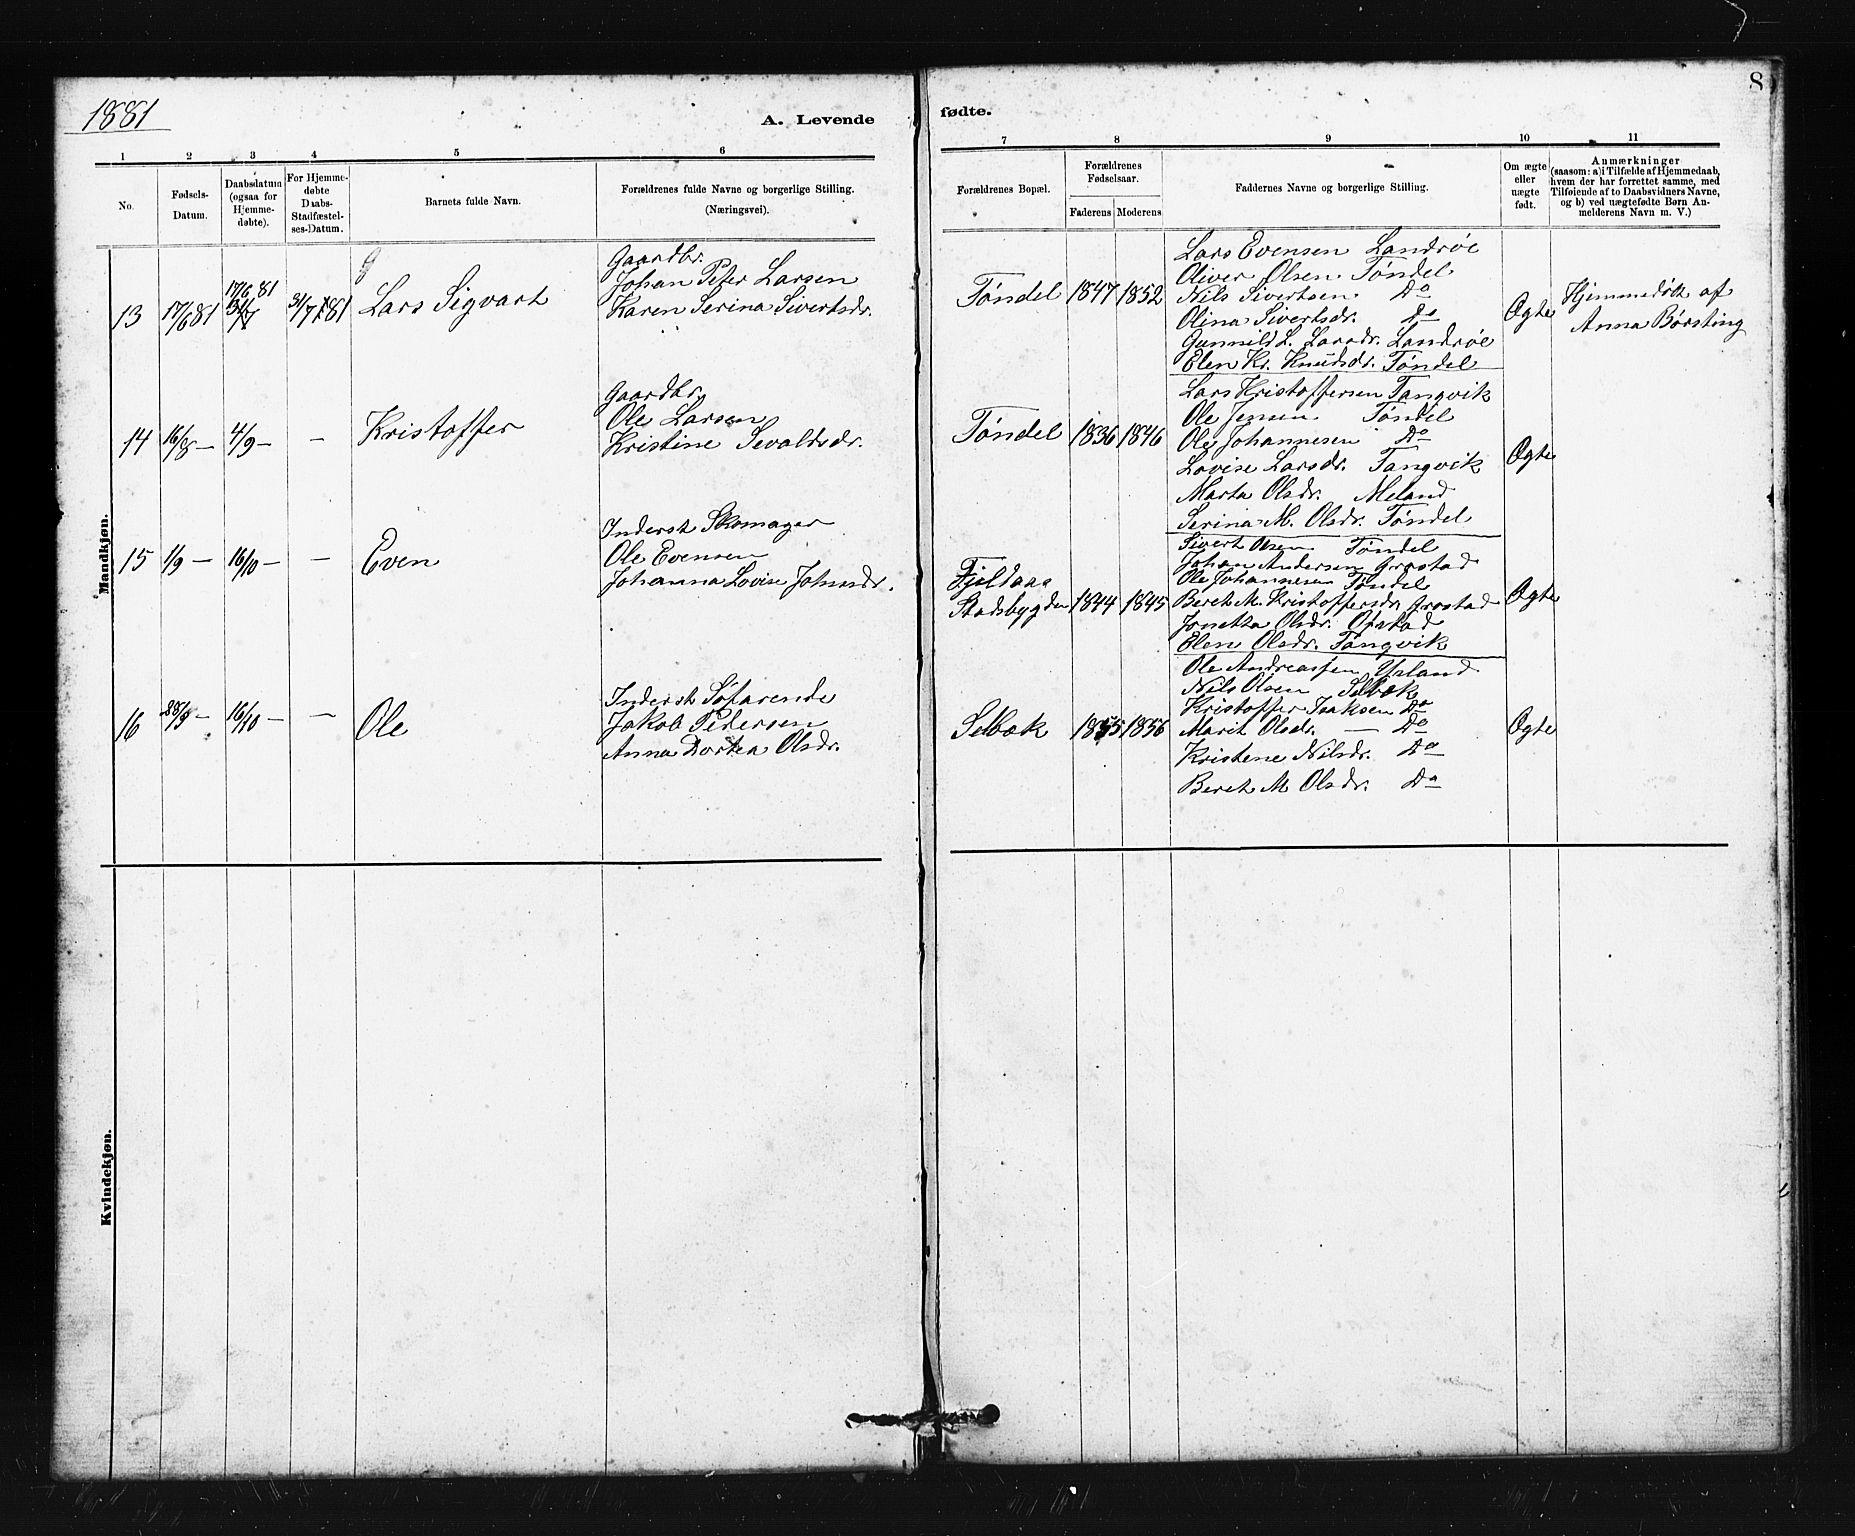 1881
8
A. Levende
fødte.
1 2 3 4 5 6
7 8 9 10 11
No.
Fødsels-
Datum.
Daabsdatum
(ogsaa for
Hjemme-
døbte).
For Hjemme-
døbte
Daabs-
Stadfæstel-
ses-Datum.
Barnets fulde Navn.
Forældrenes fulde Navne og borgerlige Stilling.
(Næringsvei).
Forældrenes Bopæl.
Forældrenes
Fødselsaar.
Faderens Moderens
Faddernes Navne og borgerlige Stilling.
Om ægte
eller
uægte
født.
Anmærkninger
(saasom: a) i Tilfælde af Hjemmedaab,
hvem der har forrettet samme, med
Tilføiende af to Daabsvidners Navne,
og b) ved uægtefødte Børn An-
melderens Navn m. V.)
Mandkjøn.
13
17/6 81
17/6 81
31/7
31/7 81
Lars Sigvart
Gaardbr.
Johan Peter Larsen
Karen Serina Sivertsdr.
Tøndel
1847
1852
Lars Evensen Landrøe
Oliver Olsen Tøndel
Nils Sivertsen Do
Olina Sivertsdr. Do
Gunnild L. Larsdr. Landrøe
Elen Kr. Knudsdr. Tøndel
Ogte
Hjemmedøbt af
Anna Børsting
14
16/8 —
4/9 —
—
Kristoffer
Gaardbr.
Ole Larsen
Kristine Sevaldsdr.
Tøndel
1836
1846
Lars Kristoffersen Tangvik
Ole Jensen Tøndel
Ole Johannesen Do
Lovise Larsdr. Tangvik
Marta Olsdr. Meland
Serina M. Olsdr. Tøndel
Ogte
15
1/9 —
16/10 —
—
Even
Inderst Skomager
Ole Evensen
Johanna Lovise Johnsdr.
Fjeldaas
Stadsbygden
1844
1845
Sivert Olsen Tøndel
Johan Andersen Grøstad
Ole Johannesen Tøndel
Beret M. Kristoffersdr. Grøstad
Jonetta Olsdr. Opstad
Elen Olsdr. Tangvik
Ogte
16
28/9 —
16/10 —
—
Ole
Inderst Søfarende
Jakob Pedersen
Anna Dortea Olsdr.
Selbæk
1855
1856
Ole Andreassen
Nils Olsen Selbæk
Kristoffer Isaksen Do
Marit Olsdr. — Do
Kristene Nilsdr. Do
Beret M Olsdr. Do
Ogte
Kvindekjøn.